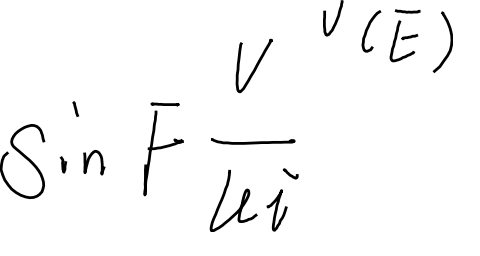 \sin F \frac{V}{\mu i} ^{v(E)}